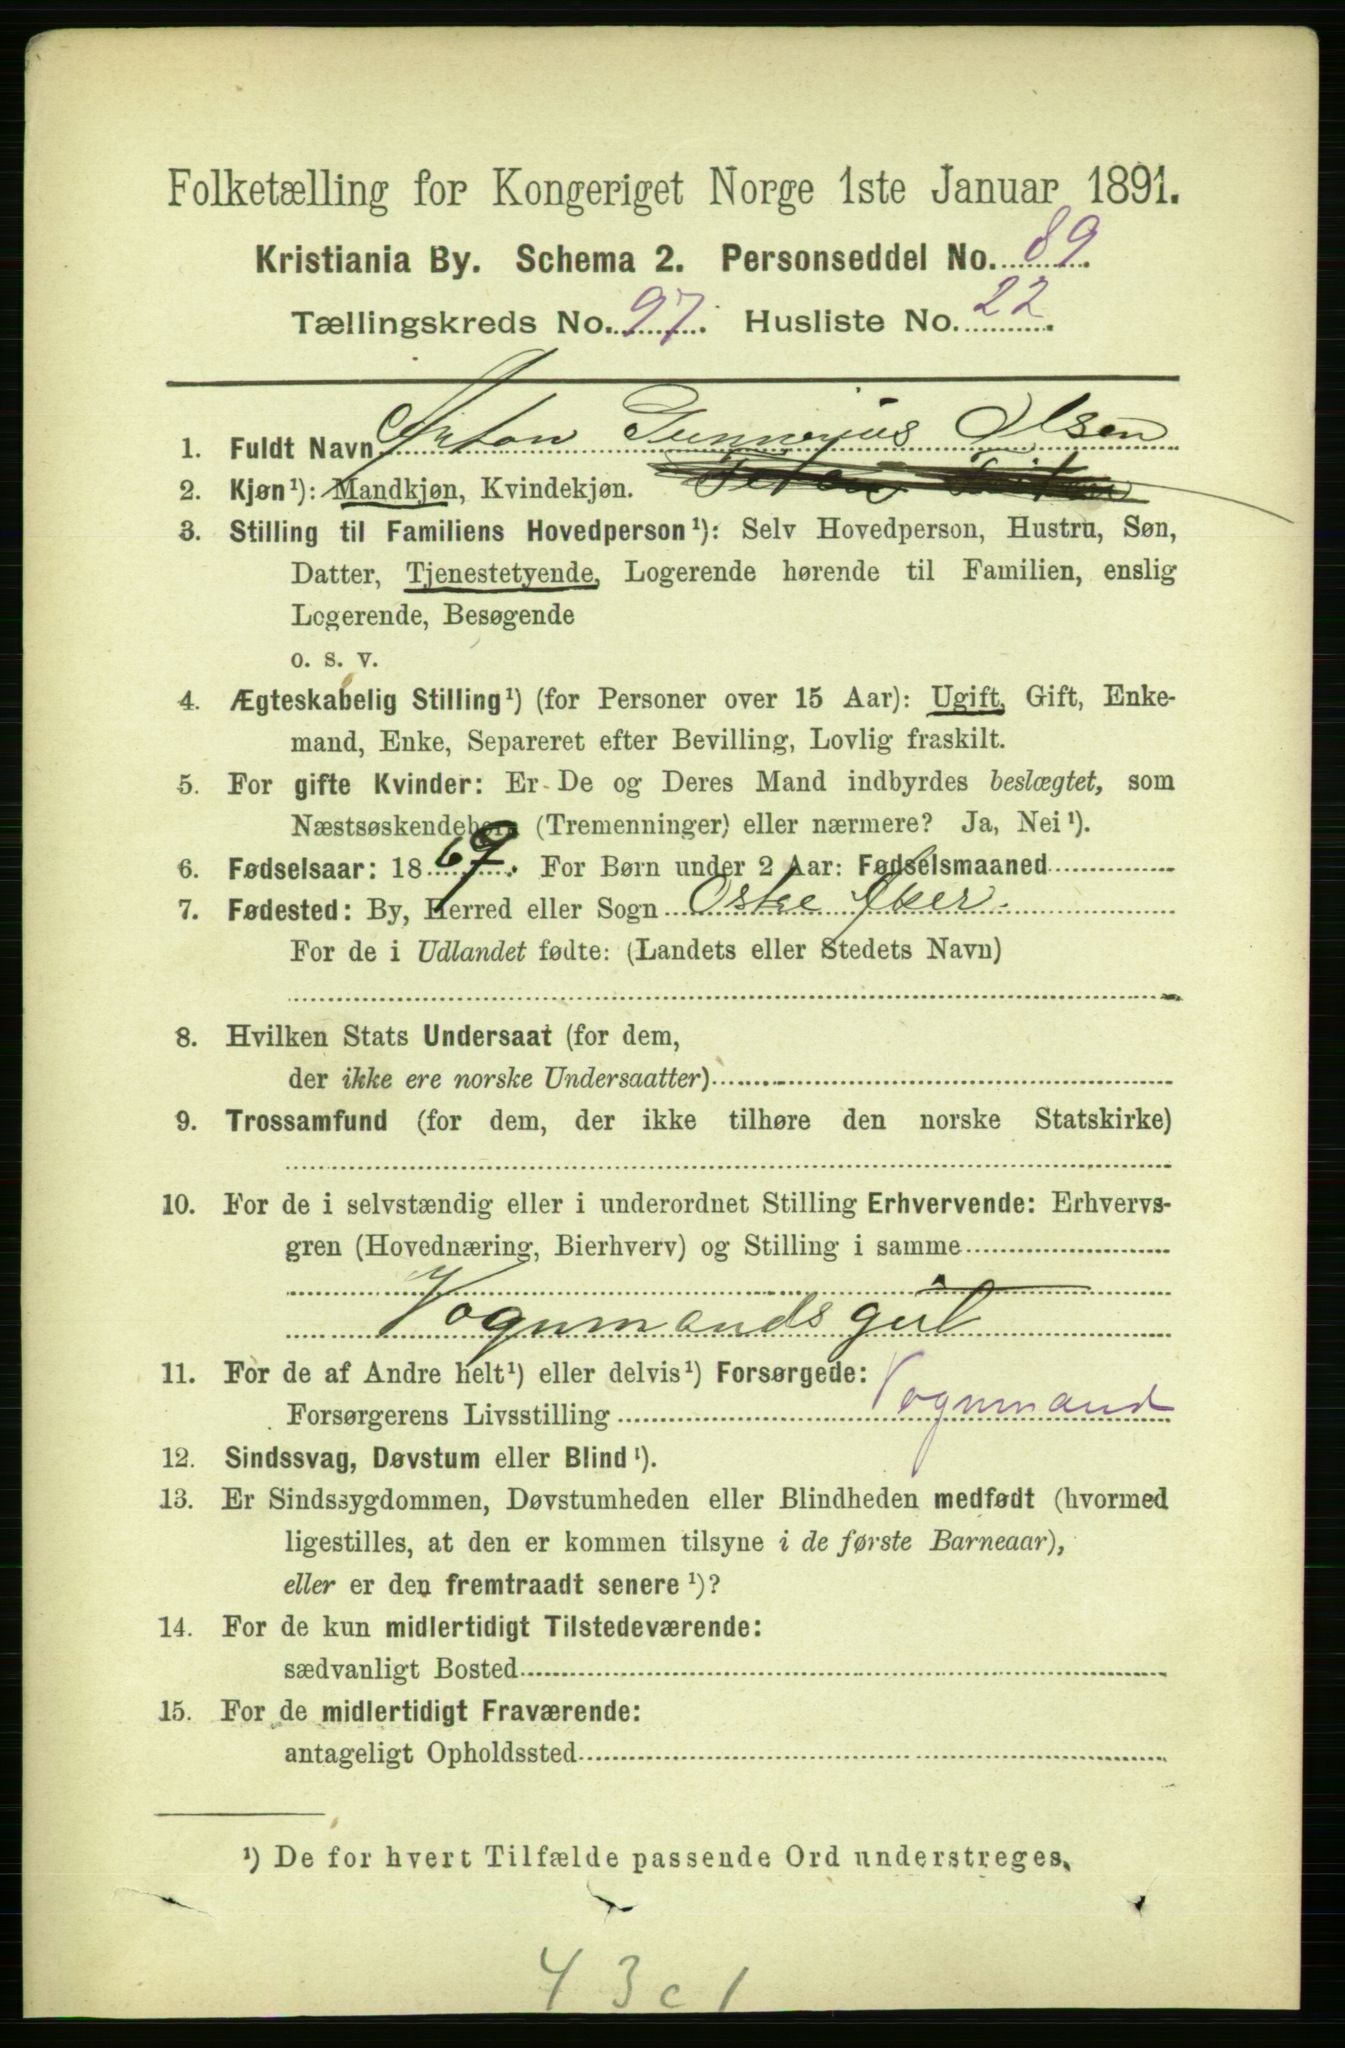 Folketælling for Kongeriget Norge 1ste Januar 1891.
Kristiania By. Schema 2. Personseddel No. 89.
Tællingskreds No. 97. Husliste No. 22.
1. Fuldt Navn Anton Gunnerius Olsen
2. Kjøn¹): Mandkjøn, Kvindekjøn.
3. Stilling til Familiens Hovedperson¹): Selv Hovedperson, Hustru, Søn,
Datter, Tjenestetyende, Logerende hørende til Familien, enslig
Logerende, Besøgende
o. s. v.
4. Ægteskabelig Stilling¹) (for Personer over 15 Aar): Ugift, Gift, Enke-
mand, Enke, Separeret efter Bevilling, Lovlig fraskilt.
5. For gifte Kvinder: Er De og Deres Mand indbyrdes beslægtet, som
Næstsøskendebørn (Tremenninger) eller nærmere? Ja, Nei¹).
6. Fødselsaar: 1867. For Børn under 2 Aar: Fødselsmaaned
7. Fødested: By, Herred eller Sogn Østre Aker.
For de i Udlandet fødte: (Landets eller Stedets Navn)
8. Hvilken Stats Undersaat (for dem,
der ikke ere norske Undersaatter)
9. Trossamfund (for dem, der ikke tilhøre den norske Statskirke)
10. For de i selvstændig eller i underordnet Stilling Erhvervende: Erhvervs-
gren (Hovednæring, Bierhverv) og Stilling i samme
Vognmandsgut
11. For de af Andre helt¹) eller delvis¹) Forsørgede:
Forsørgerens Livsstilling Vognmand
12. Sindssvag, Døvstum eller Blind¹).
13. Er Sindssygdommen, Døvstumheden eller Blindheden medfødt (hvormed
ligestilles, at den er kommen tilsyne i de første Barneaar),
eller er den fremtraadt senere¹)?
14. For de kun midlertidigt Tilstedeværende:
sædvanligt Bosted
15. For de midlertidigt Fraværende:
antageligt Opholdssted
¹) De for hvert Tilfælde passende Ord understreges.
43c1